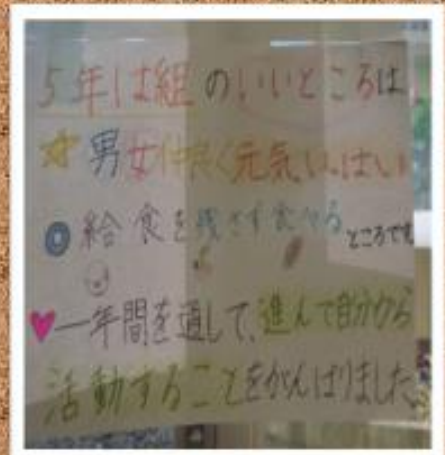 5年は組のいいところは
☆男女仲良く元気いっぱい
◎給食を残さず食べる ところです
♥一年間を通して、進んで自分から
活動することをがんばりました。